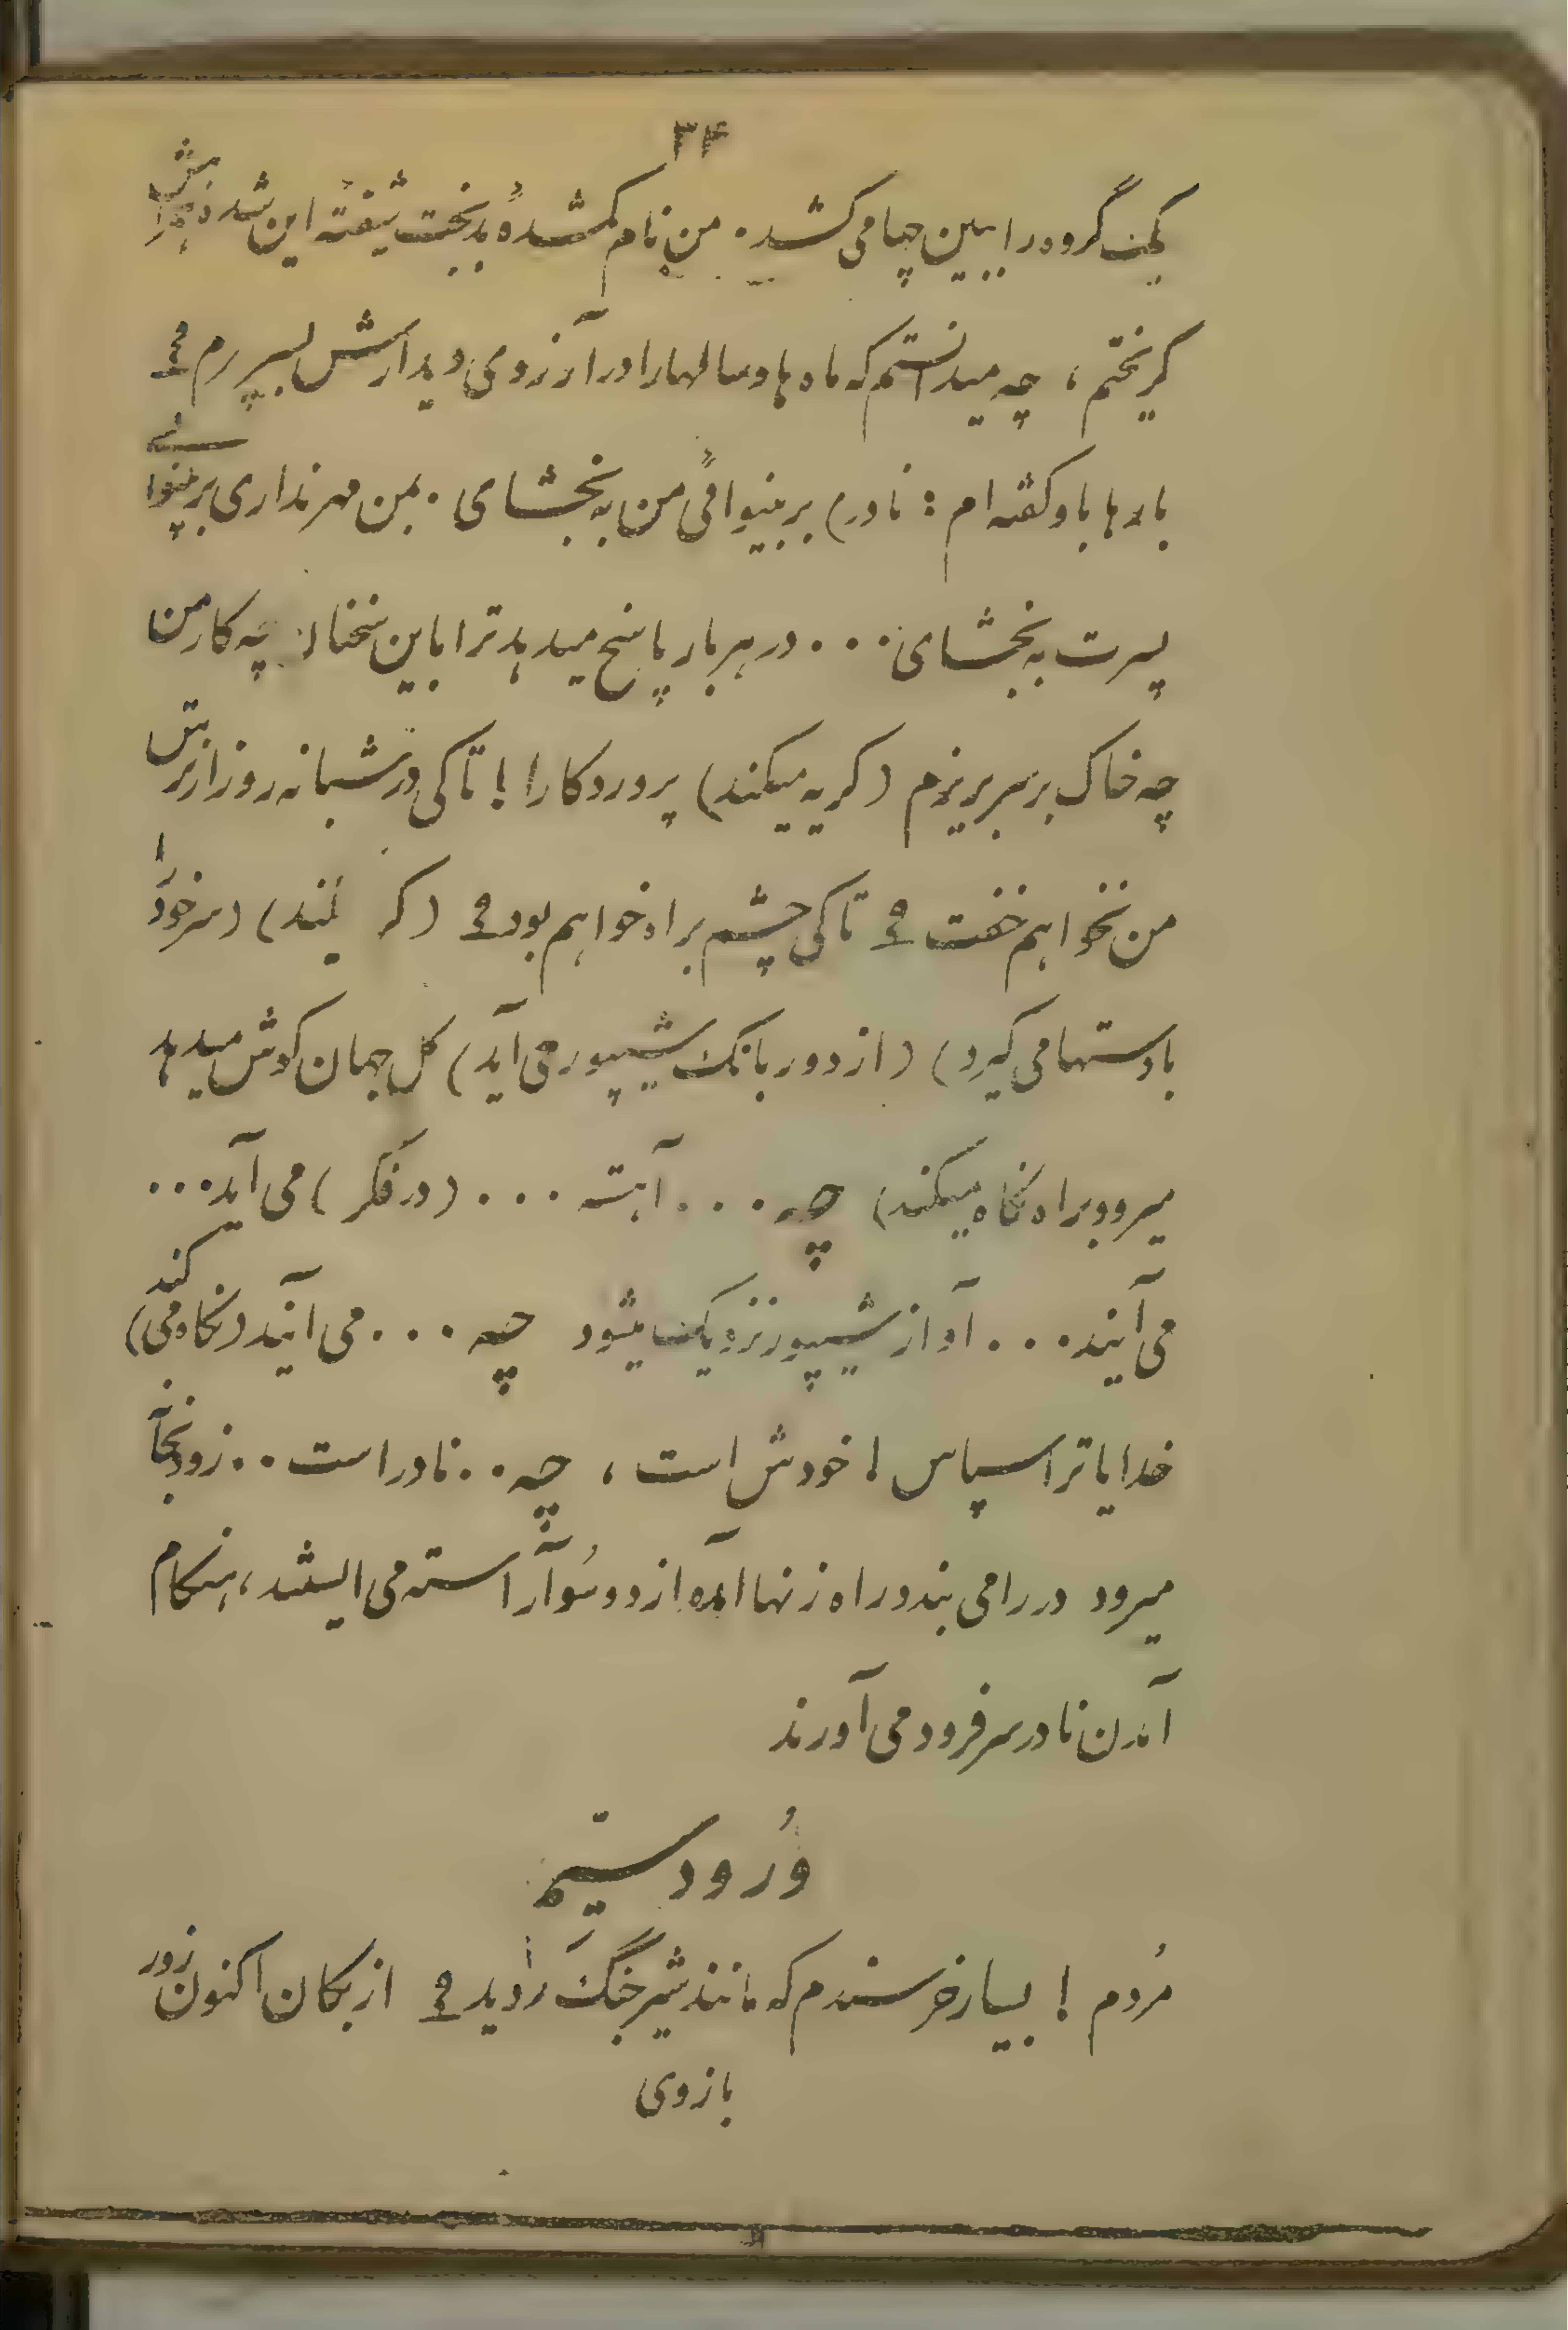 ۳۴
یک گروه را ببین چها می کشد. من نام گمشدهٔ بدبخت شیفته این شده
گریختم، چه میدانستم که ماه ها و سالها را در آرزوی دیدارش بسپرم؟
بارها باو گفته ام: نادر) بر بینوائی من به بخشای. بمن مهر نداری بر بینوائی
پسرت به بخشای... در هر بار پاسخ میدهد ترا باین سخنان چه کار من
چه خاک بر سر بریزم (گریه میکند) پروردگارا! تا کی در شبانه روز از برش
من نخواهم خفت؟ تا کی چشم براه خواهم بود؟ (گر یکند) (سر خود را
با دستها می گیرد) (از دور بانگ شیپور می آید) گل جهان گوش میدهد
میرود براه نگاه میکند) چه... آهسته... (در فکر) می آید...
می آیند... آواز شیپور نزدیک میشود چه... می آیند (نگاه می کند)
خدایا ترا سپاس! خودش است، چه.. نادر است.. زود بجای
میرود در را می بندد راه زنها آمده از دو سو آراسته می ایستند، هنگام
آمدن نادر سر فرود می آورند
وُرود ستیم
مُردم! بسیار خرسندم که مانند شیر جنگ رادید؟ از بکان اکنون زور
بازوی